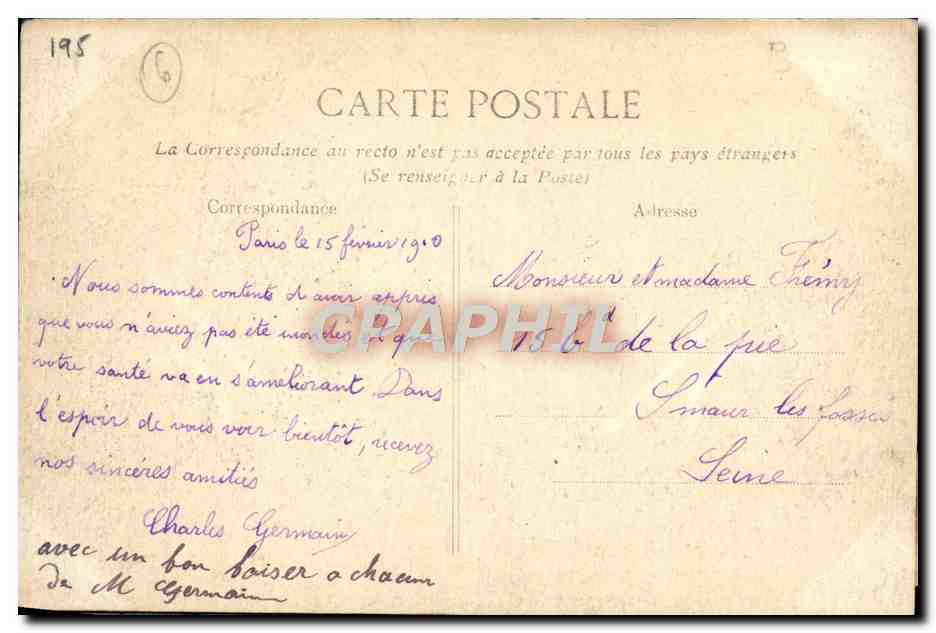 195
6
CARTE POSTALE
La Correspondance au recto n'est pas acceptée par tous les pays étrangers
(Se renseigner à la Poste)
Correspondance
Paris le 15 février 1910
Nous sommes contents d'avoir appris
que vous n'aviez pas été inondés et que
votre santé va en s'améliorant. Dans
l'espoir de vous voir bientôt, recevez
nos sincères amitiés
Charles Germain
avec un bon baiser a chacun
de M Germain
Adresse
Monsieur et madame Frémy
15 bd de la pie
St maur les fossés
Seine
CPAPHIL